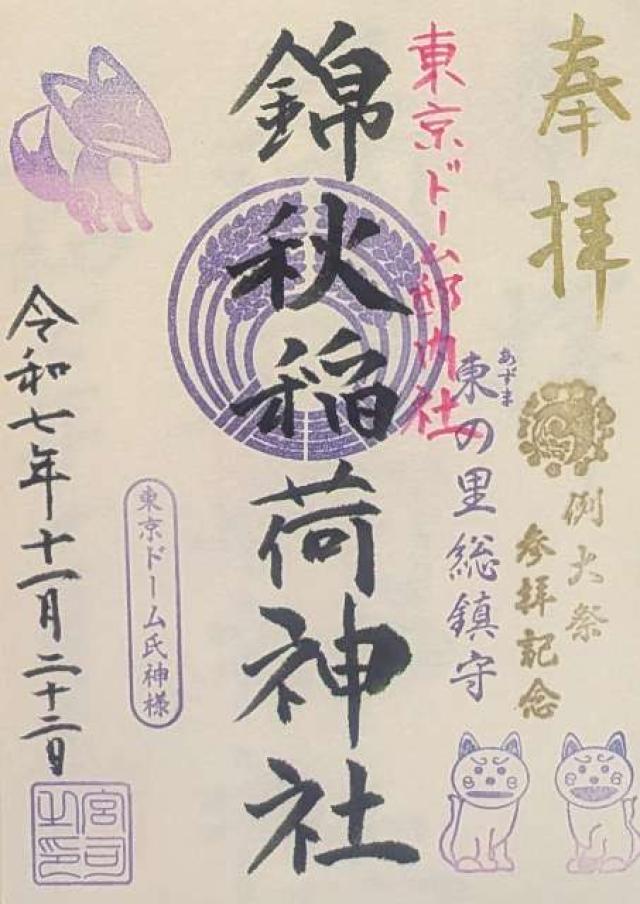 奉拝
例大祭
参拝記念
あずま
東の里総鎮守
東京ドーム邸内社
錦秋稲荷神社
東京ドーム氏神様
令和七年十一月二十二日
宮司之印